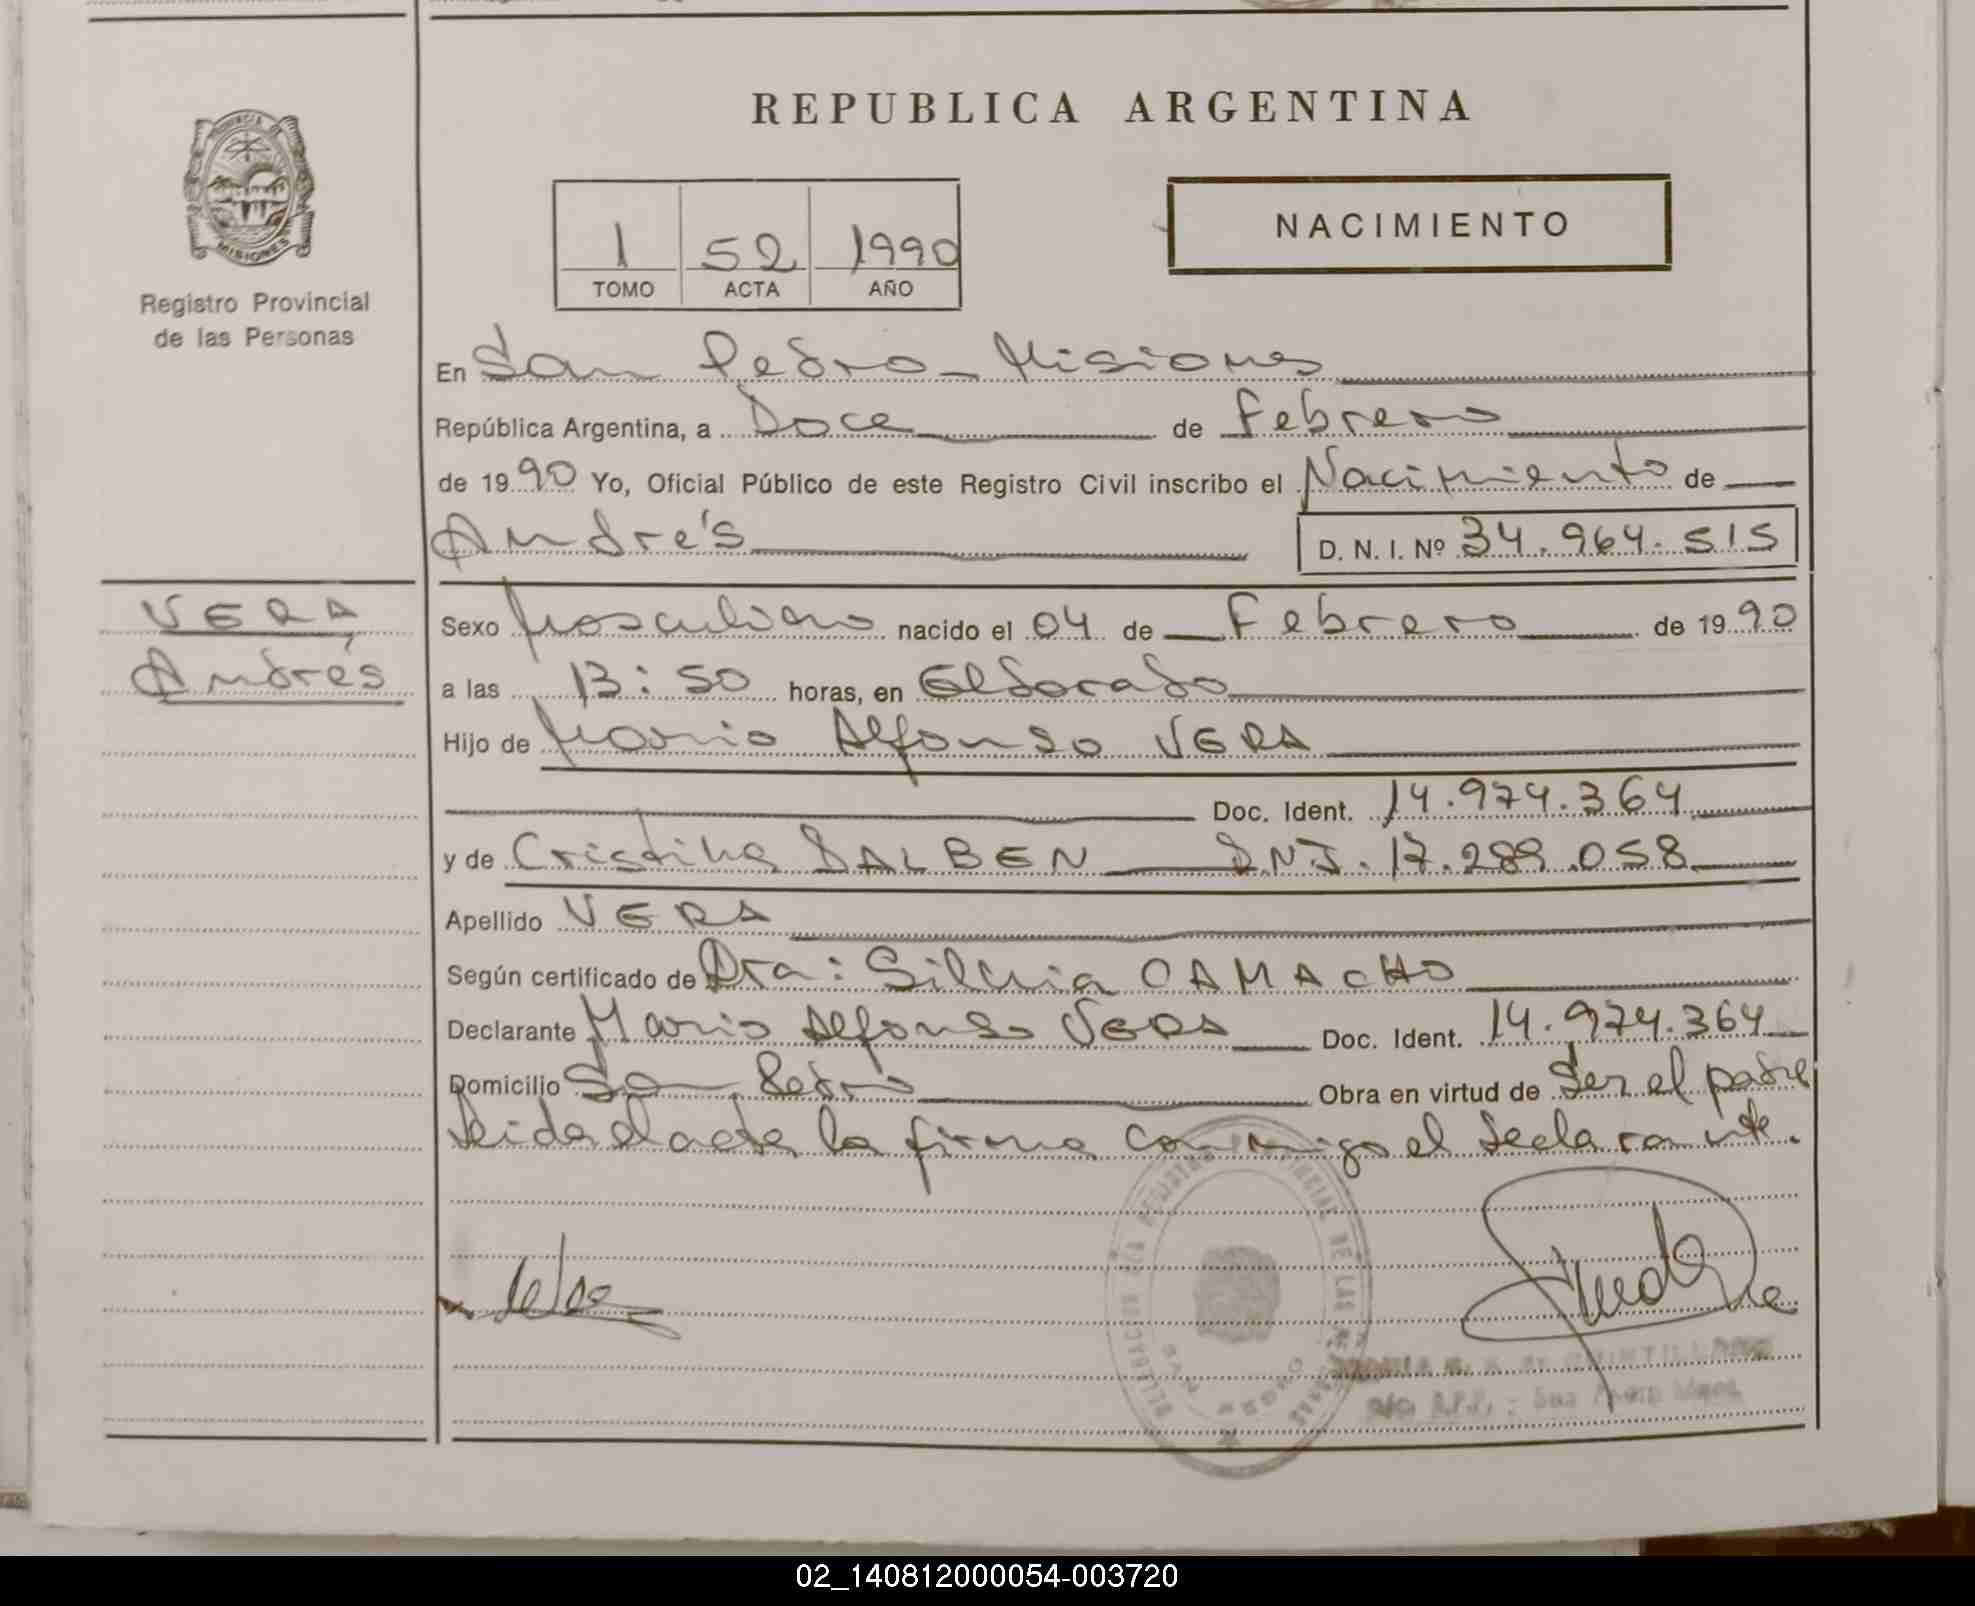 REPUBLICA ARGENTINA
PROVINCIA DE
MISIONES
Registro Provincial
de las Personas
1 52 1990
TOMO ACTA AÑO
NACIMIENTO
En San Pedro - Misiones
República Argentina, a Doce de Febrero
de 1990 Yo, Oficial Público de este Registro Civil inscribo el Nacimiento de
Andrés D. N. I. Nº 34.964.515
VERA
Andrés
Sexo Masculino nacido el 04 de Febrero de 1990
a las 13:50 horas, en Eldorado
Hijo de Mario Alfonso VERA
Doc. Ident. 14.974.364
y de Cristina DALBEN D.N.I. 17.289.058
Apellido VERA
Según certificado de Dra: Silvia CAMACHO
Declarante Mario Alfonso VERA Doc. Ident. 14.974.364
Domicilio San Pedro Obra en virtud de Ser el padre
Leida el acta la firma conmigo el declarante.
REGISTRO PROVINCIAL DE LAS PERSONAS
SAN PEDRO
QUINTILLANO
02_140812000054-003720